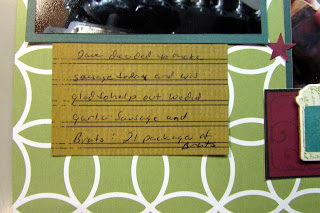 Dave decided to make
sausage today and wil
glad to help out we did
garlic Sausage and
Brats: 21 packages of
Brats